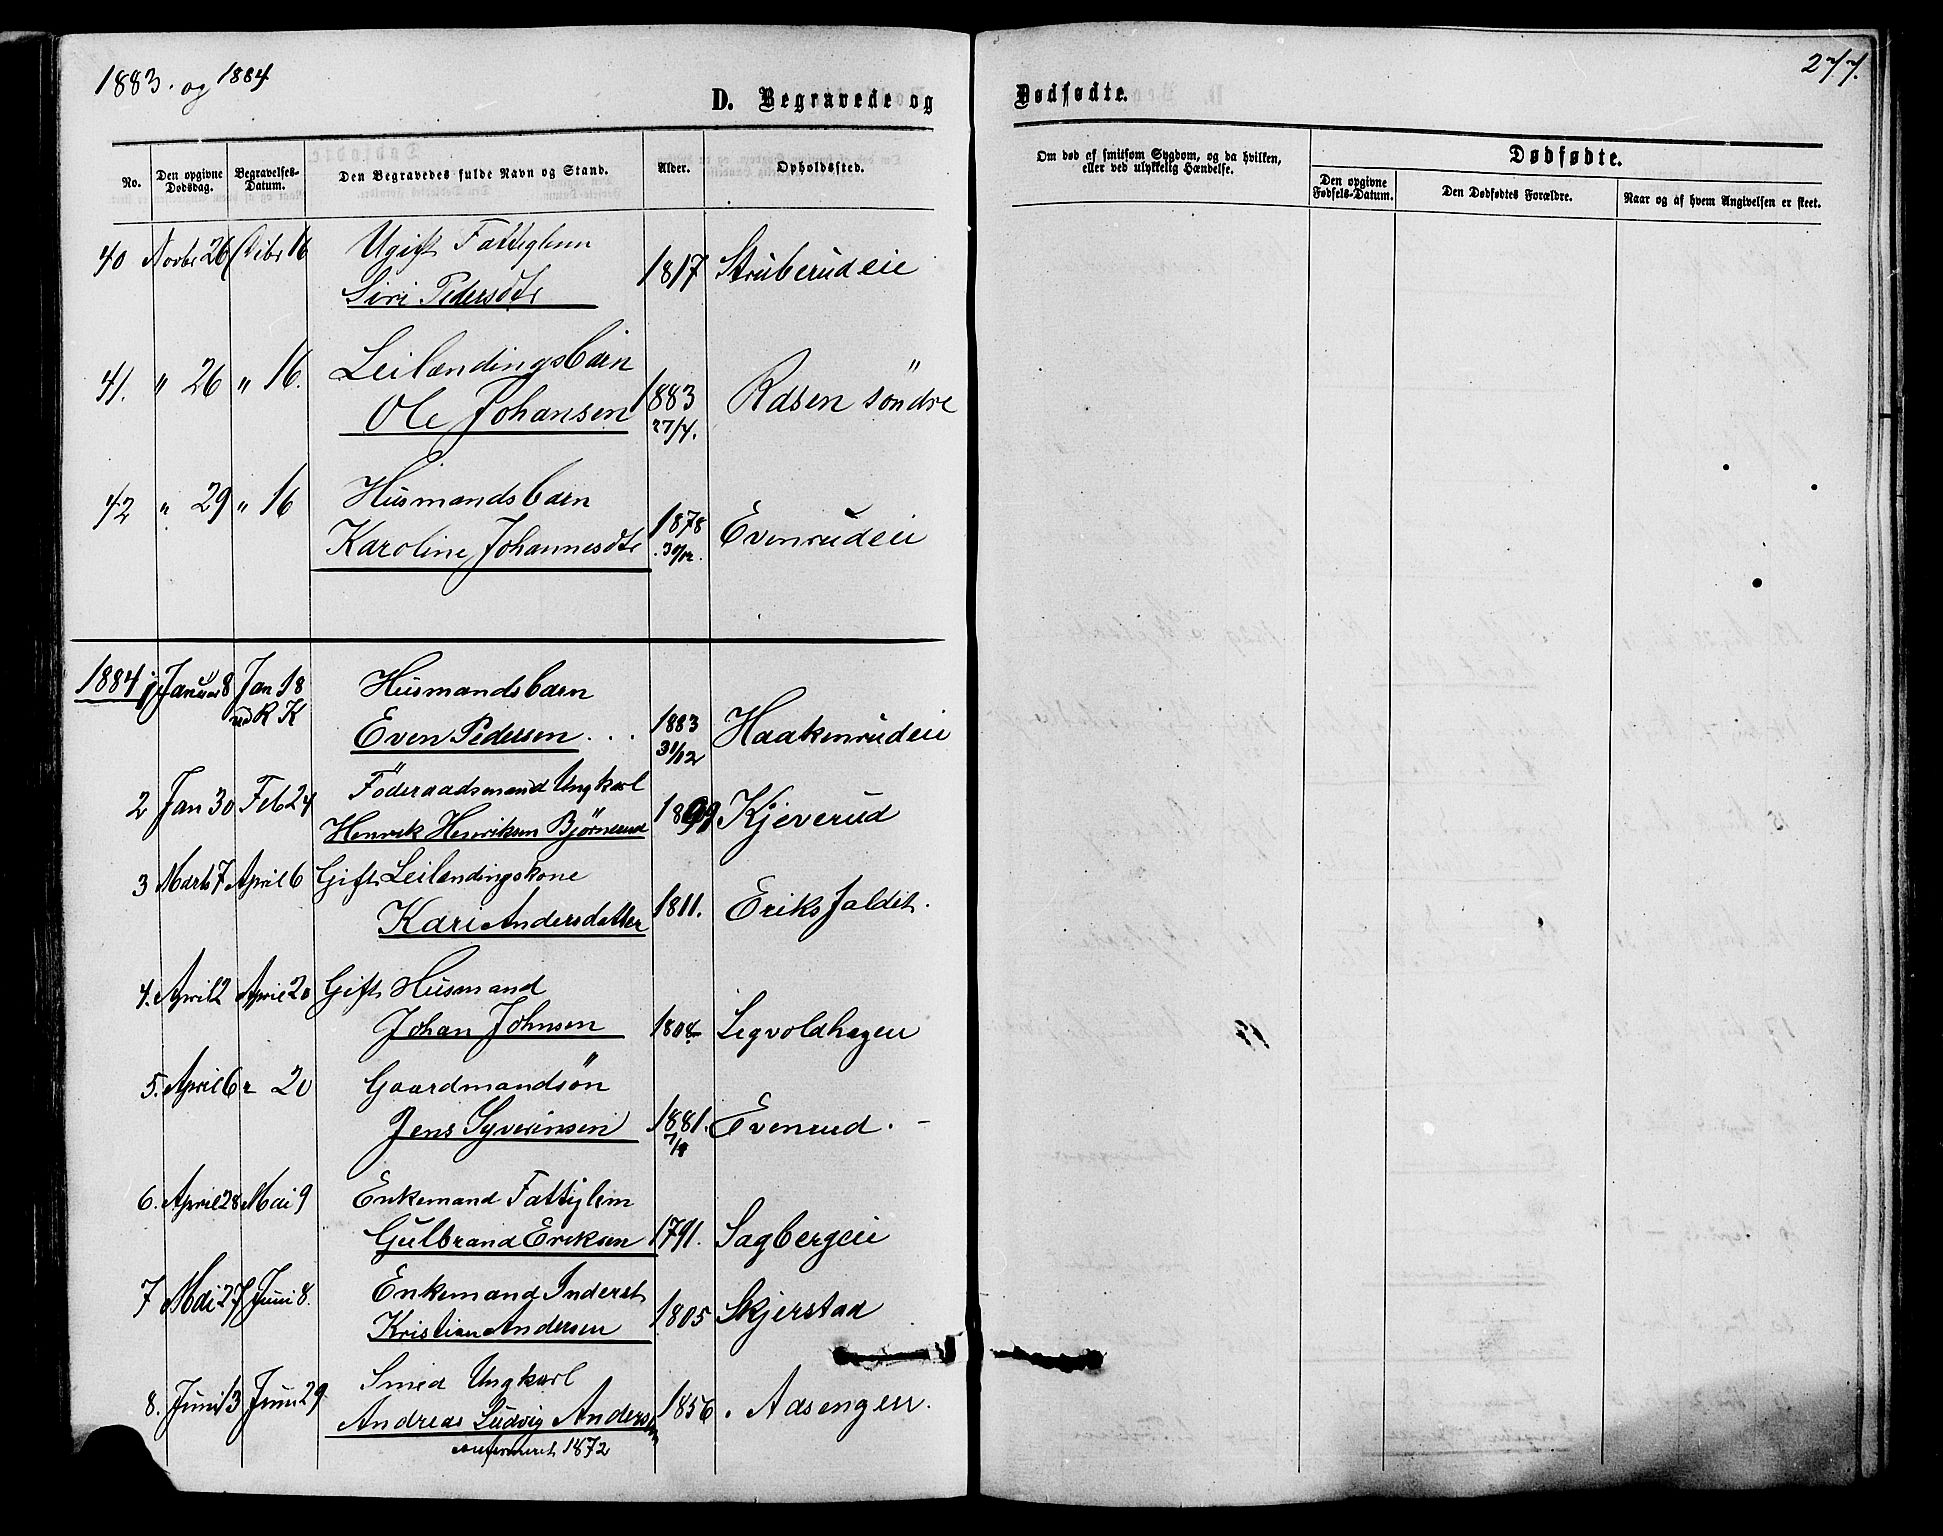 1883. og 1884
277.
D. Begravede og Dødfødte.
No. Den opgivne Dødsdag. Begravelses-Datum. Den Begravedes fulde Navn og Stand. Alder. Opholdssted.
Om død af smitsom Sygdom, og da hvilken, eller ved ulykkelig Hændelse.
Dødfødte.
Den opgivne Fødsels-Datum. Den Dødfødtes Forældre. Naar og af hvem Angivelsen er skeet.
40 Novbr 26 Debr 16 Ugift Fattiglem
Siri Pedersdtr 1817 Struberudeie
41. " 26 " 16. Leilændingsbarn
Ole Johansen 1883 27/4. Raasen söndre
42 " 29 " 16 Husmandsbarn
Karoline Johannesdtr 1878 30/12. Evenrudeie
1884
1 Januar 8 Jan 18 Husmandsbarn
Even Pedersen 1883 31/12 Haakenrudeie
2 Jan 30 Feb 24 Föderaadsmand Ungkarl
Henrik Henriksen Bjørnerud Kjeverud
3 Marts 7 April 6 Gift Leilendingskone
Kari Andersdatter 1811. Eriksfaldet.
4. April 2 April 20 Gift Husmand
Johan Johnsen 1804 Legvoldhagen
5. April 6 " 20 Gaardmandsön
Jens Syverinsen 1881. Evenrud.
6. April 28 Mai 9 Enkemand Fattiglem
Gulbrand Eriksen 1791. Sagbergeie
7 Mai 27 Juni 8. Enkemand Inderst
Kristian Andersen 1805 Skjerstad
8. Juni 13 Juni 29 Smed Ungkarl
Andreas Ludvig Andersen 1856. Aasengen.
confirmeret 1872